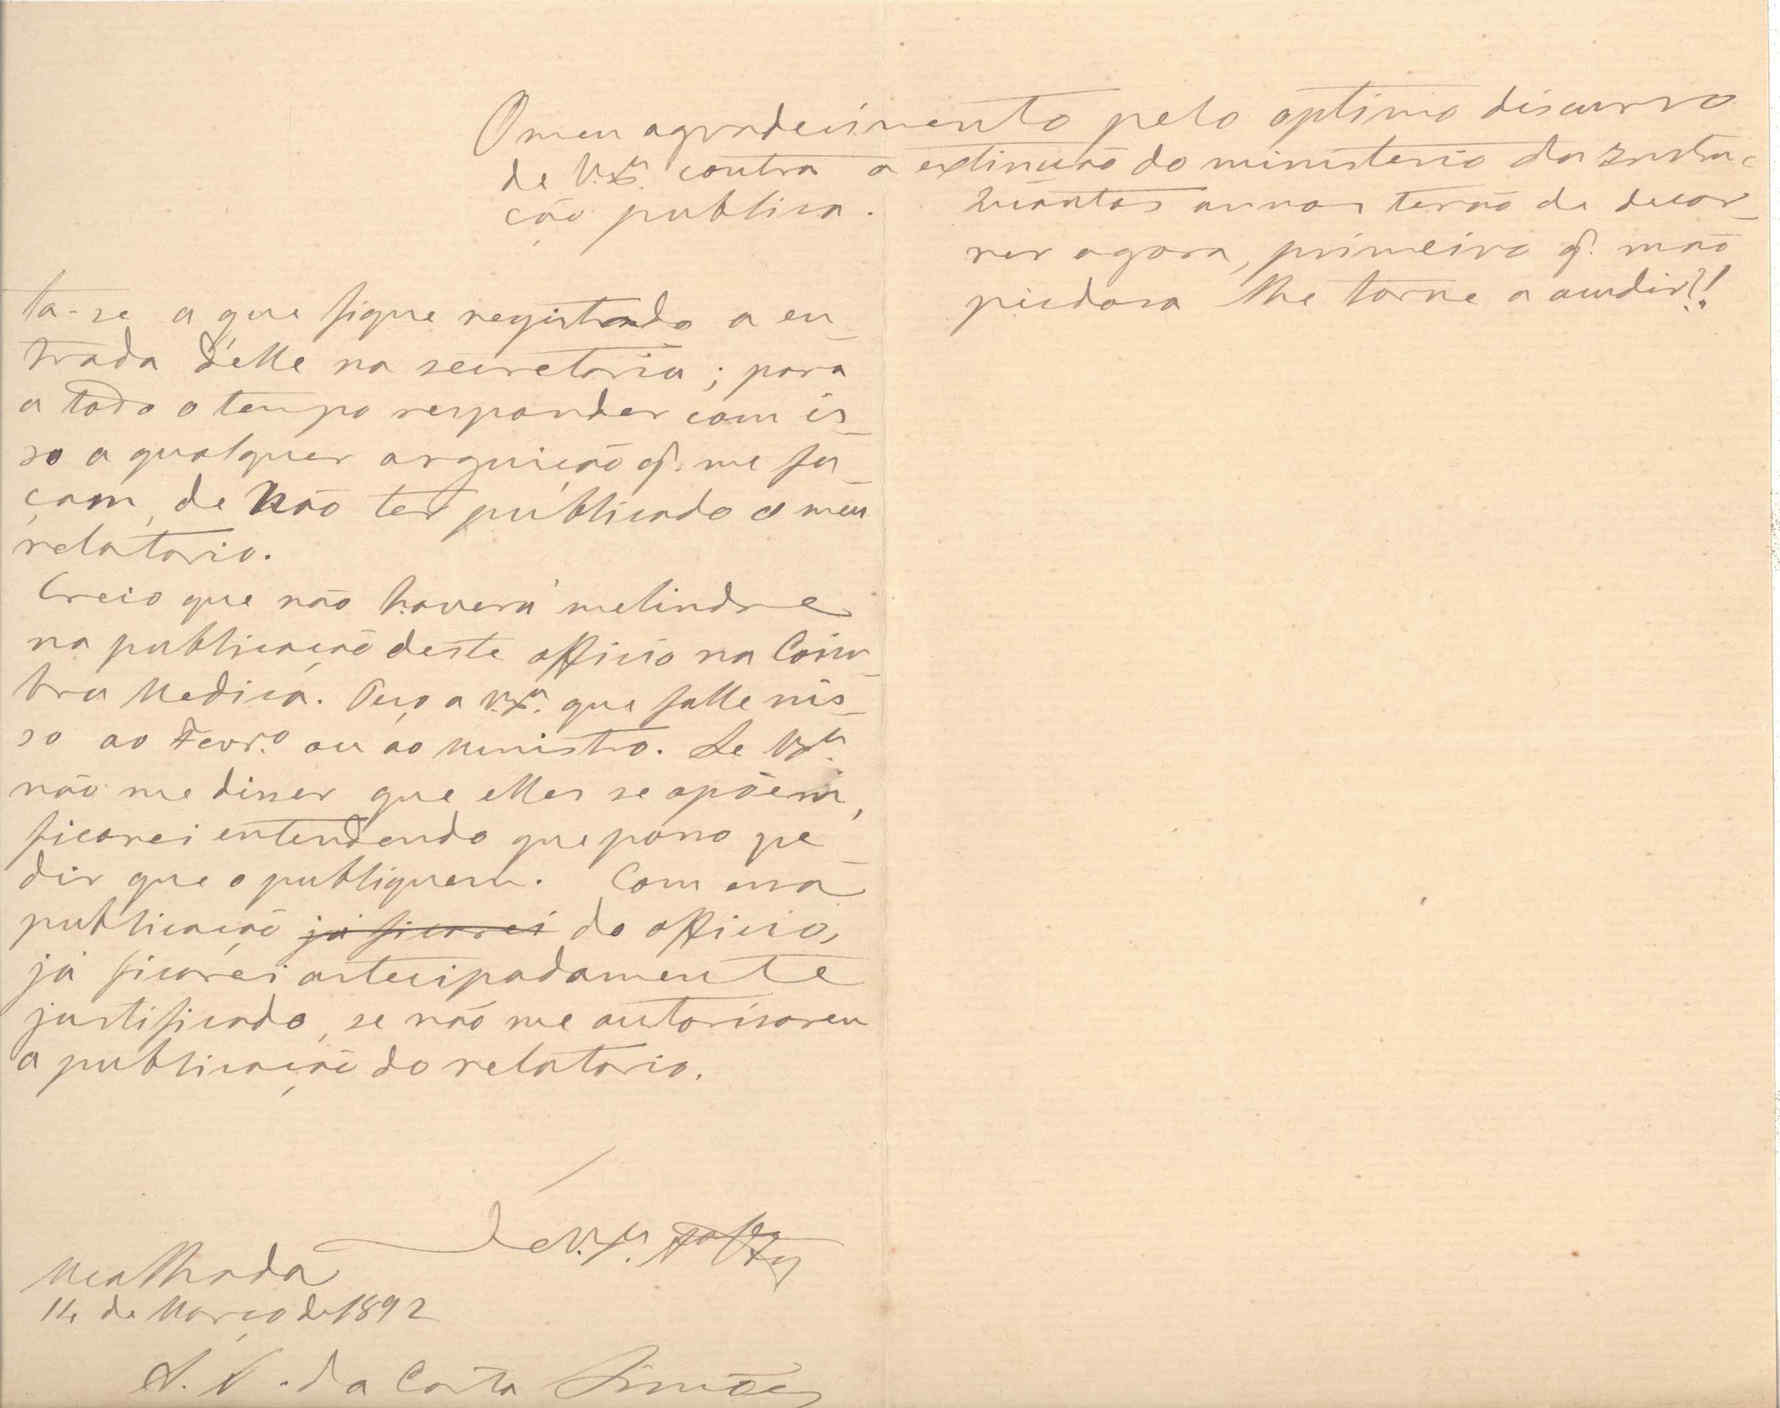 O meu agradecimento pelo optimo discurso
de V. Ex.ª contra a extincção do ministerio da Instru-
cção publica. Quantos annos terão de decor-
rer agora, primeiro q. mão
piedosa lhe torne a acudir?!
ta-se a que fique registado a en-
trada d'elle na secretaria; para
a todo o tempo responder com is-
so a qualquer arguição q. me fa-
çam, de não ter publicado o meu
relatorio.
Creio que não haverá melindre
na publicação deste officio na Coim-
bra Medica. Peço a V. Ex.ª que falle nis-
so ao Ferr.º ou ao ministro. Se V. Ex.ª
não me disser que elles se opõem,
ficarei entendendo que posso pe-
dir que o publiquem. Com essa
publicação já ficarei do officio,
já ficarei antecipadamente
justificado, se não me autorisarem
a publicação do relatorio.
De V. Ex.ª
Mealhada
14 de Março de 1892
A. A. da Costa Simões